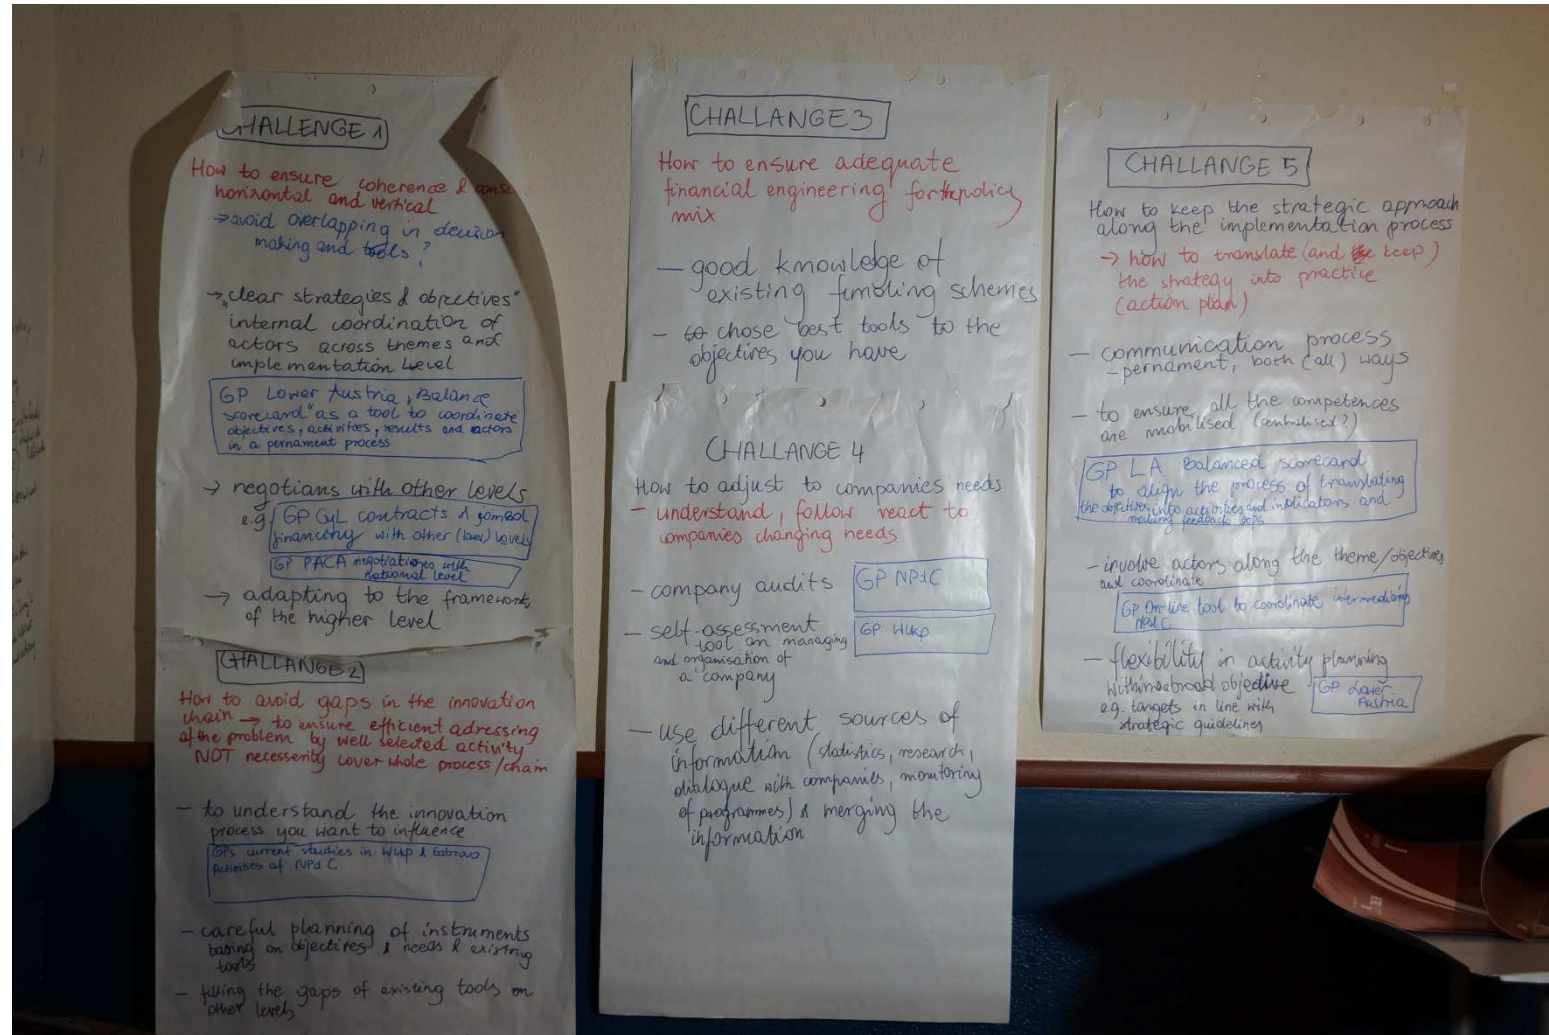 CHALLENGE 1
How to ensure coherence &
horisontal and vertical
→ avoid overlapping in decision
making and tools?
→ „clear strategies & objectives"
internal coordination of
actors across themes and
implementation level
GP Lower Austria „Balance
scorecard" as a tool to coordinate
objectives, activities, results and actors
in a pernament process
→ negotians with other levels
e.g. GP CyL contracts & jombol
financing with other (lower) levels
GP PACA negotiations with
national level
→ adapting to the framework
of the higher level
CHALLANGE 2
How to avoid gaps in the innovation
chain → to ensure efficient adressing
of the problem by well selected activity
NOT necesserily cover whole process/chain
- to understand the innovation
process you want to influence
GPs current studies in WLKP & Gabrovo
Activities of NPdC
- careful planning of instruments
basing on objectives & needs & existing
tools
- filling the gaps of existing tools on
other levels
CHALLANGE 3
How to ensure adequate
financial engineering for the policy
mix
- good knowledge of
existing schemes
- to chose best tools to the
objectives you have
CHALLANGE 4
How to adjust to companies needs
- understand, follow react to
companies changing needs
- company audits GP NPdC
- self-assessment GP WLKP
tool on managing
and organisation of
a company
- use different sources of
information (statistics, research,
dialogue with companies, monitoring
of programmes) & merging the
information
CHALLANGE 5
How to keep the strategic approach
along the implementation process
→ how to translate (and keep)
the strategy into practice
(action plan)
- communication process
- pernament, both (all) ways
- to ensure all the competences
are mobilised (centralised?)
GP LA Balanced scorecard
to align the process of translating
the objectives into activities and indicators and
making feedback loops
- involve actors along the theme/objectives
and coordinate
GP On-line tool to coordinate intermediaries
NPdC
- flexibility in activity planning
within a broad objective GP Lower
e.g. targets in line with Austria
strategic guidelines